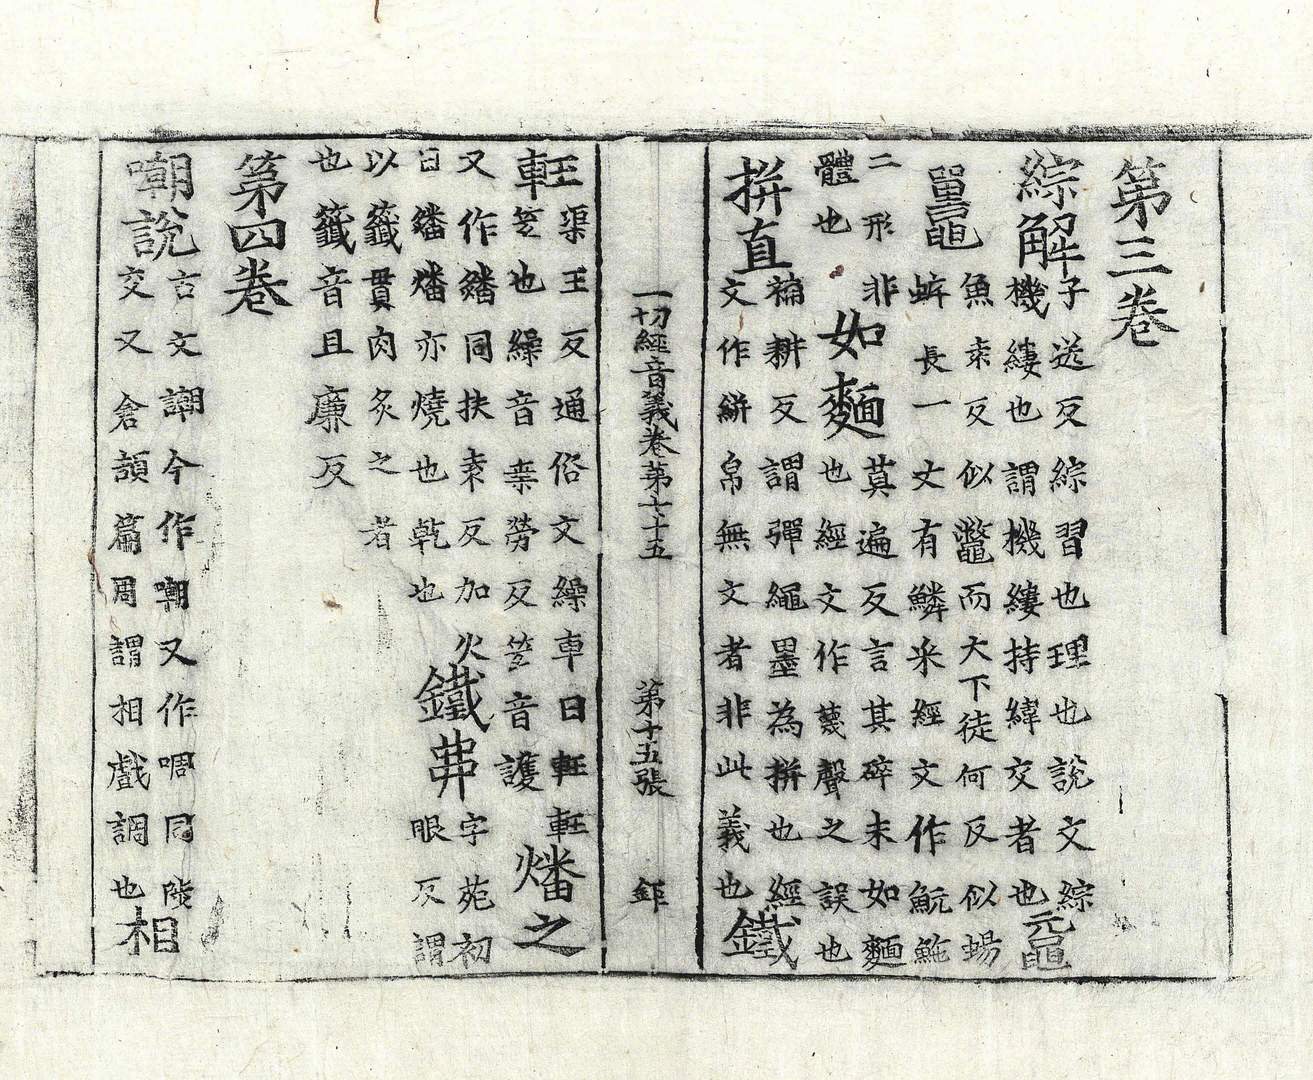 第三卷
綜解子送反綜習也理也說文綜
機縷也謂機縷持緯交者也黿
鼉魚袁反似鼈而大下徒何反似蜴
蜥長一丈有鱗采經文作魭鮀
二形非
體也如麵莫遍反言其碎末如麵
也經文作䕾聲之誤也
拼直補耕反謂彈繩墨為拼也經
文作絣帛無文者非此義也鐵
一切經音義卷第七十五 第十五張 鉅
軖渠王反通俗文繰車曰軖軖
笠也繰音桒勞反笠音護燔之
又作繙同扶袁反加火
曰繙燔亦燒也乾也鐵丳字苑初
眼反謂
以籤貫肉炙之者
也籤音且廉反
第四卷
嘲說言文謿今作嘲又作啁同陟
交又倉頡篇周謂相戲調也相